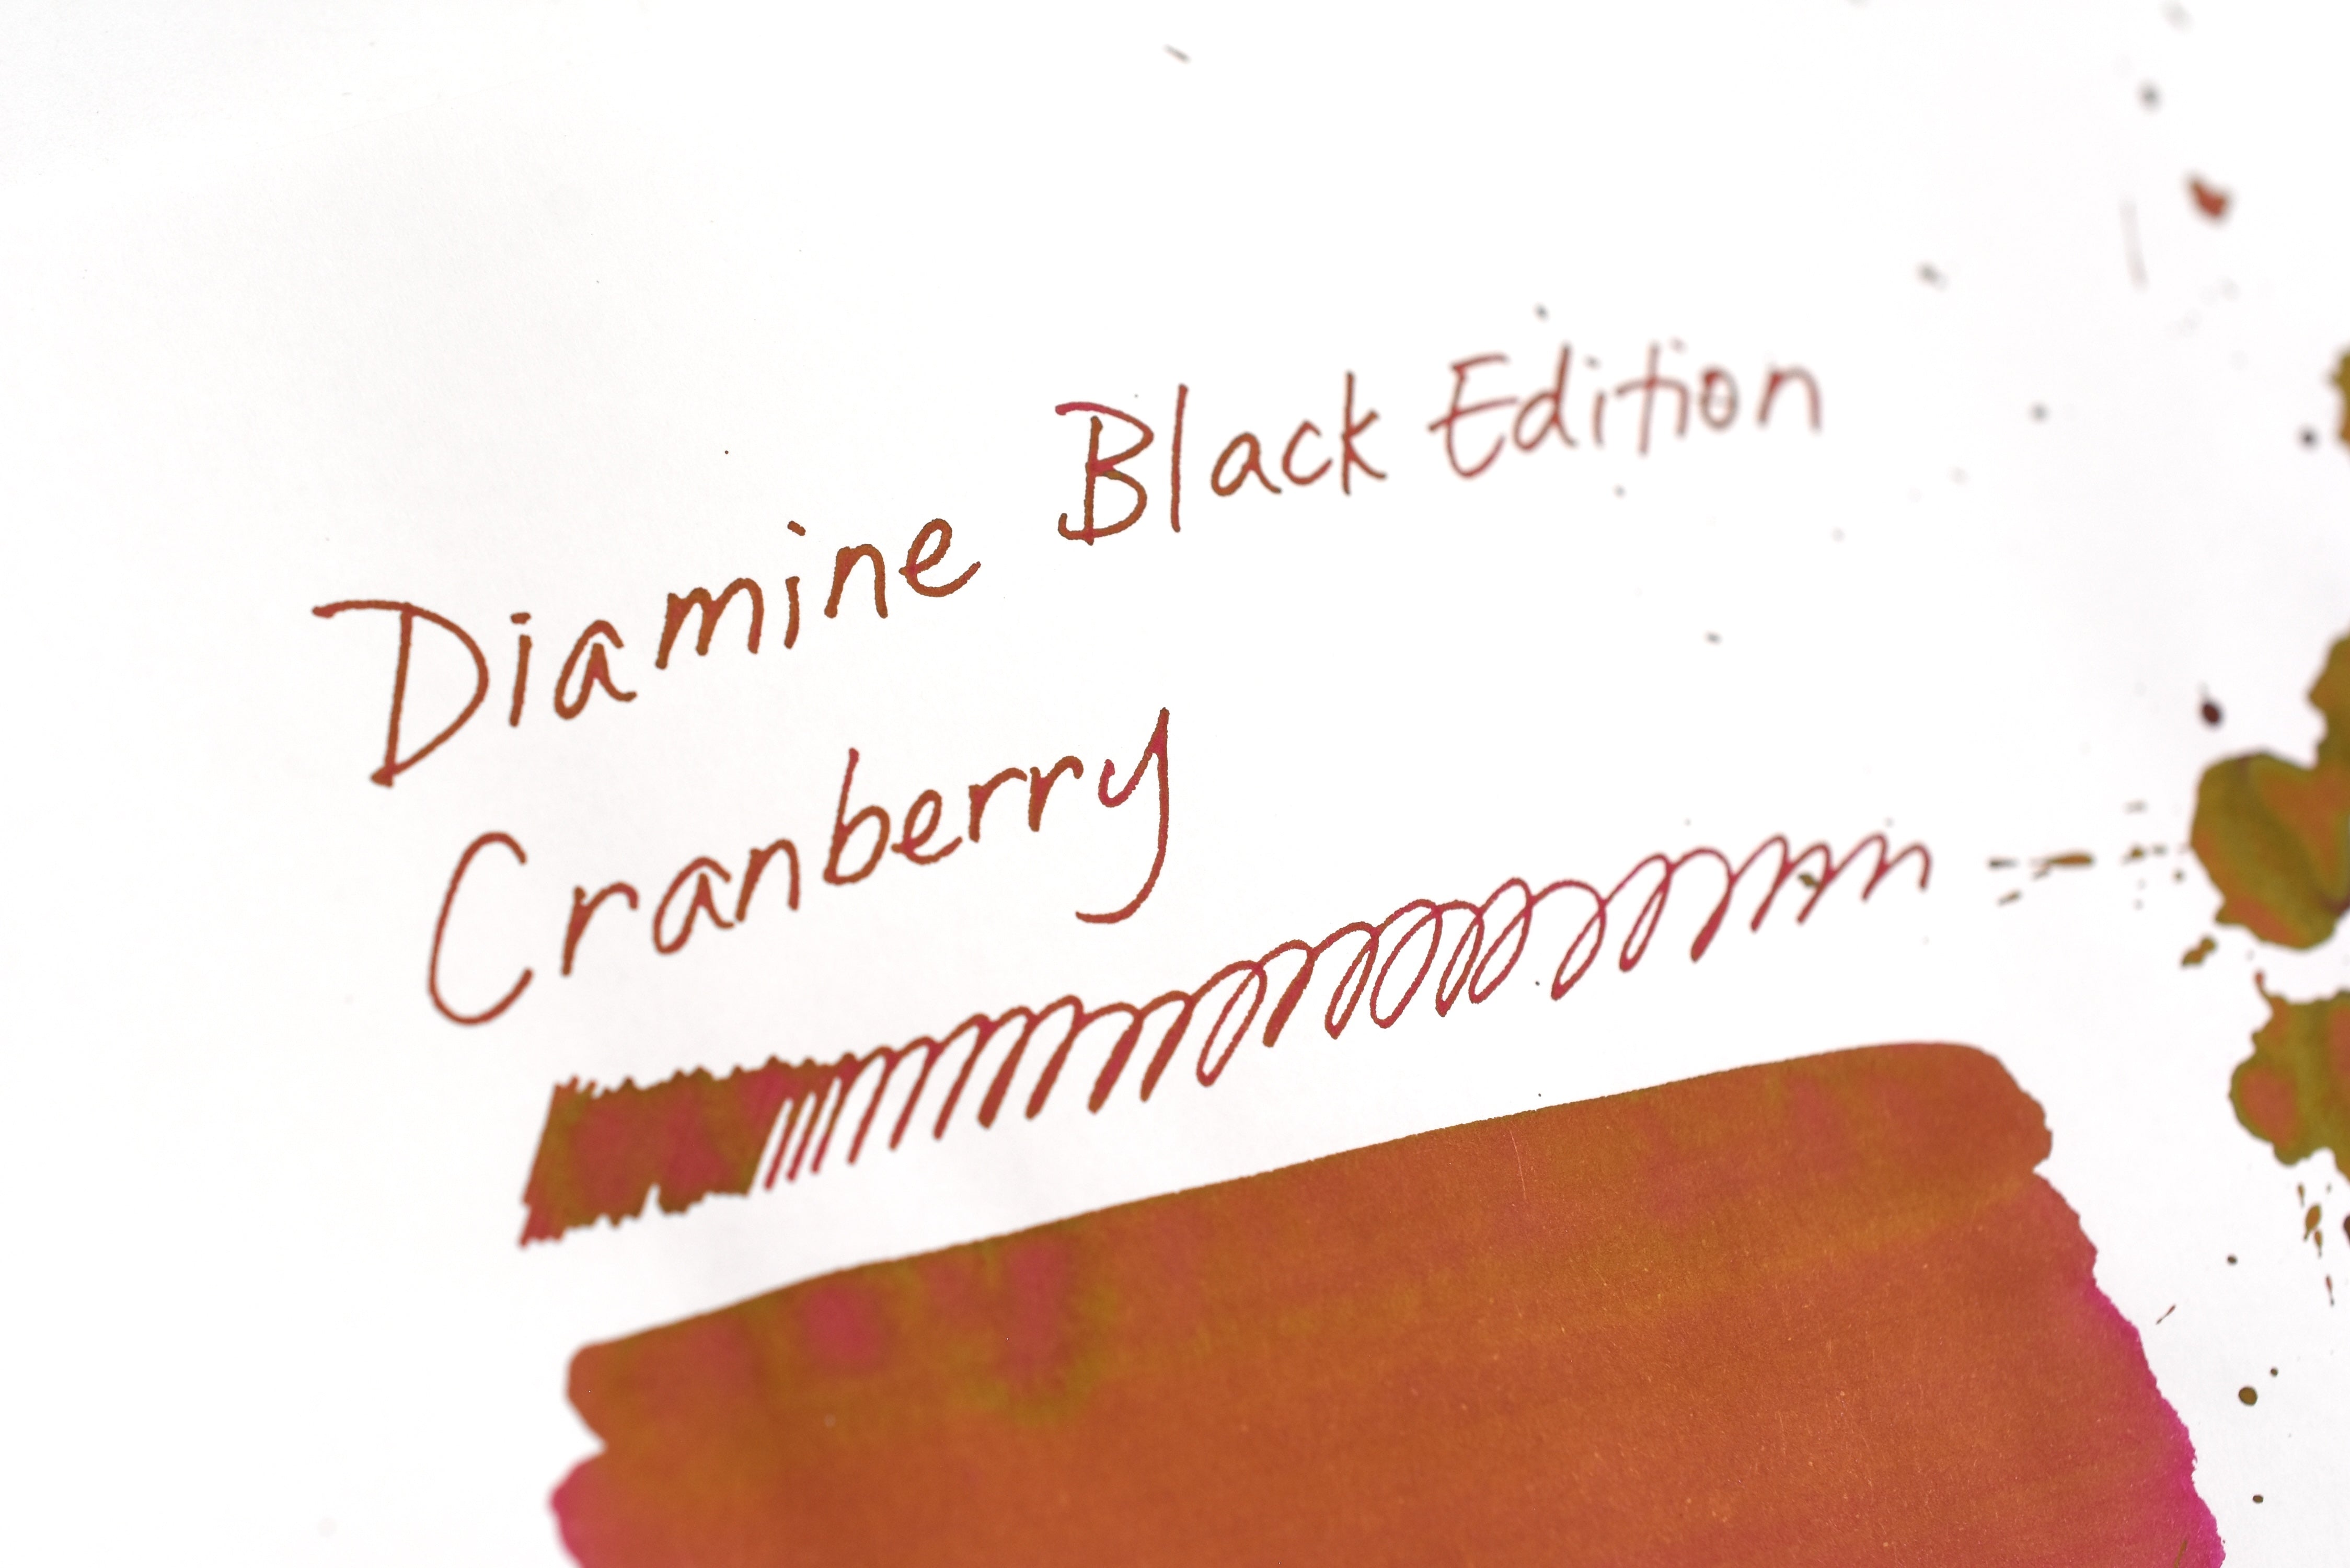 Diamine Black Edition
Cranberry